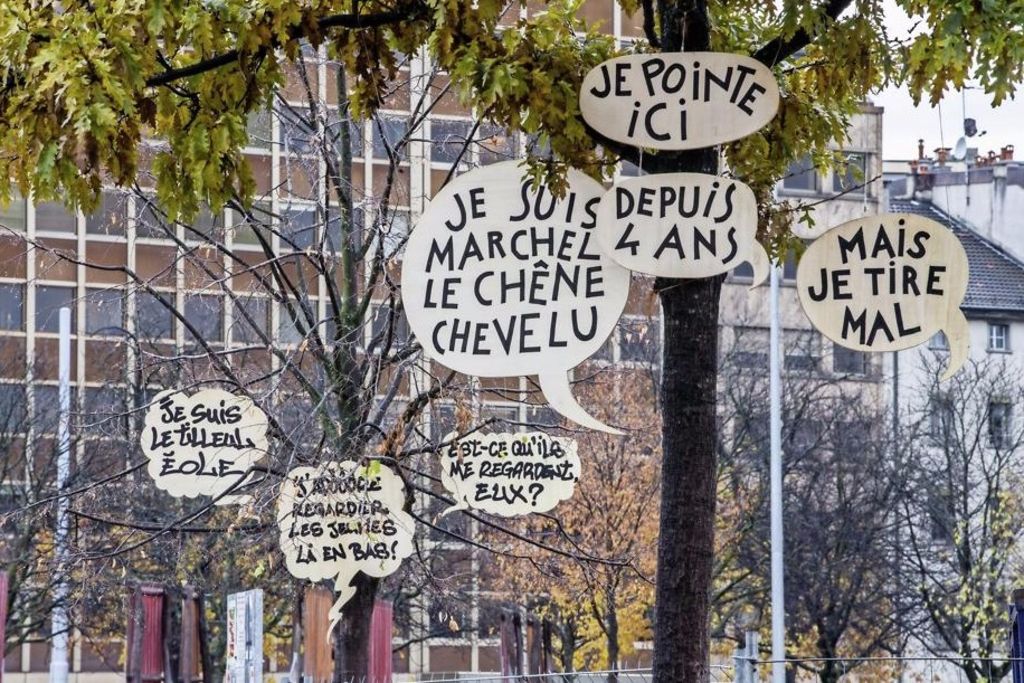 JE POINTE
ICI
JE SUIS
MARCHEL
LE CHÊNE
CHEVELU
DEPUIS
4 ANS
MAIS
JE TIRE
MAL
JE SUIS
LE TILLEUL
ÉOLE
REGARDER
LES JEUNES
LÀ EN BAS!
EST-CE QU'ILS
ME REGARDENT,
EUX?